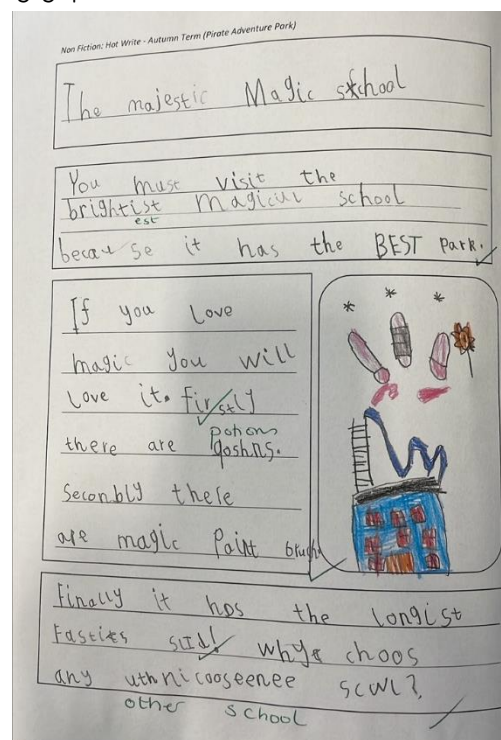 Non Fiction: Hot Write - Autumn Term (Pirate Adventure Park)
The majestic Magic school
You must visit the
brightist magicul school
est
because it has the BEST park.
If you love
magic you will
love it. firstly
potions
there are poshns.
Seconbly there
are magic paint brush
Finally it has the longist
fastiest slid! why choos
any uthr school?
other school